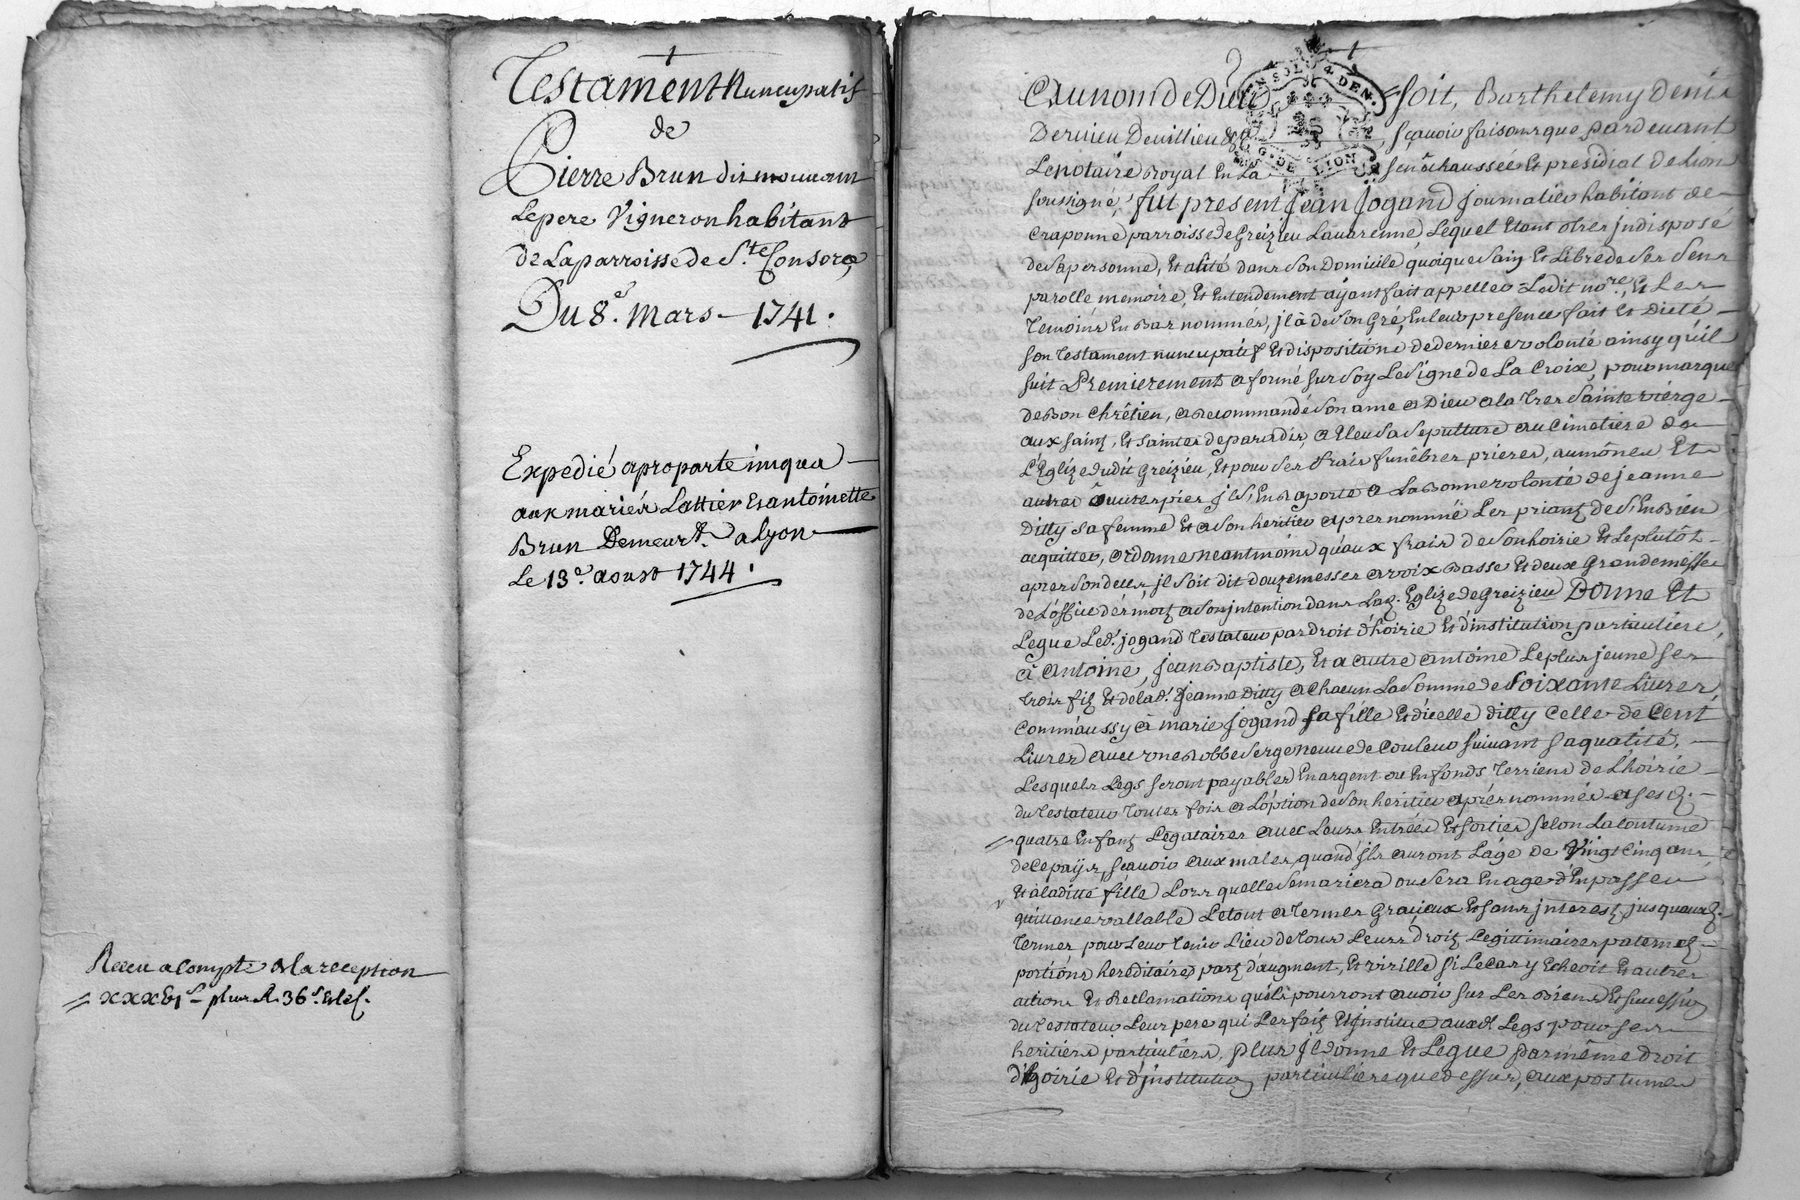 Testament Nuncupatif
de
Pierre Brun dit mouuant
Lepere Vigneron habitant
de Laparroisse de S.te Consorce
Du 8.e Mars 1741.
Expedié aproparte imqua
aux mariés Lattier Et antoinette
Brun Demeurt. a Lyon
Le 13.e aoust 1744.
Receu acompte de la reception
plus 36.s
Au nom de Dieu soit, Barthelemy Denis
Deruieu Deuillieu sçauoir faisons que pardeuant
Le notaire Royal En La senéchaussée Et presidial de Lion
soussigné, fut present Jean Jogand Journalier habitant de
Craponne parroisse de Greizieu Lauarenne, Lequel Etant Jndisposé
de sa personne, Et alité dans son Domicile, quoique sain Et Libre de ses sens
parolle memoire, Et Entendement ayant fait appeller Ledit no.re, Et Les
Temoins En Bas nommés, jl à de son Gré, En leur presence fait Et Dicté
son Testament nuncupatif Et disposition de derniere volonté ainsy qu'il
suit Premierement a formé sur soy Le signe de La Croix, pour marque
de Bon Chrêtien, a Recommandé son ame a Dieu a la Tres sainte vierge
aux saints, Et saintes de paradis, a Eleu sa sepulture au Cimetiere de
L'Eglize dudit Greizieu, Et pour ses frais funêbres prieres, aumônes Et
autres Œuures pies jl s'En Raporte a La Bonne volonté de jeanne
Dilly sa femme Et a son heritier apres nommé Les priant de s'En Bien
acquitter, ordonne neantmoins qu'aux frais de son hoirie Et Le plutôt
apres son deces, jl soit dit douze messes a voix Basse Et deux Grande messe
de L'office des morts a son jntention dans Lad. Eglize de Greizieu Donne Et
Legue Led. jogand Testateur par droit d'hoirie Et d'institution particuliere,
à Antoine, jean Baptiste, Et a autre antoine Le plus jeune ses
trois fils Et de lad. Jeanne Dilly a Chacun La somme de soixante Liures,
Comm'aussy à marie jogand sa fille Et d'icelle dilly Celle de Cent
Liures auec vne Robbe serge neuue de Couleur suiuant sa qualité,
Lesquels Legs seront payables En argent ou En fonds Terriens de L'hoirie
du Testateur Toutes fois a L'option de son heritier aprés nommé a sesd.
quatre Enfans Legataires auec Leurs Entrées Et sorties selon La Coutume
de Ce pays, sçauoir aux males, quand jls auront L'age de Vingt cinq ans
Et à ladite fille Lors quelle se mariera ou sera En age d'En passer
quittance vallable Le tout a Termes Gracieux Et sans jnterest jusquauxd.
Termes pour Leur tenir Lieu de tous Leurs droits Legitimaires paternels
portions hereditaires parts d'augment, Et virille si Le Cas y Echeoit Et autres
actions Et Reclamations qu'ils pourront auoir sur Les Biens Et succession
du Testateur Leur pere qui Les fait Et Jnstitue auxd. Legs pour ses
heritiers particuliers, plus jl donne Et Legue par même droit
d'hoirie Et d'jnstitution particuliere que dessus, aux postumes